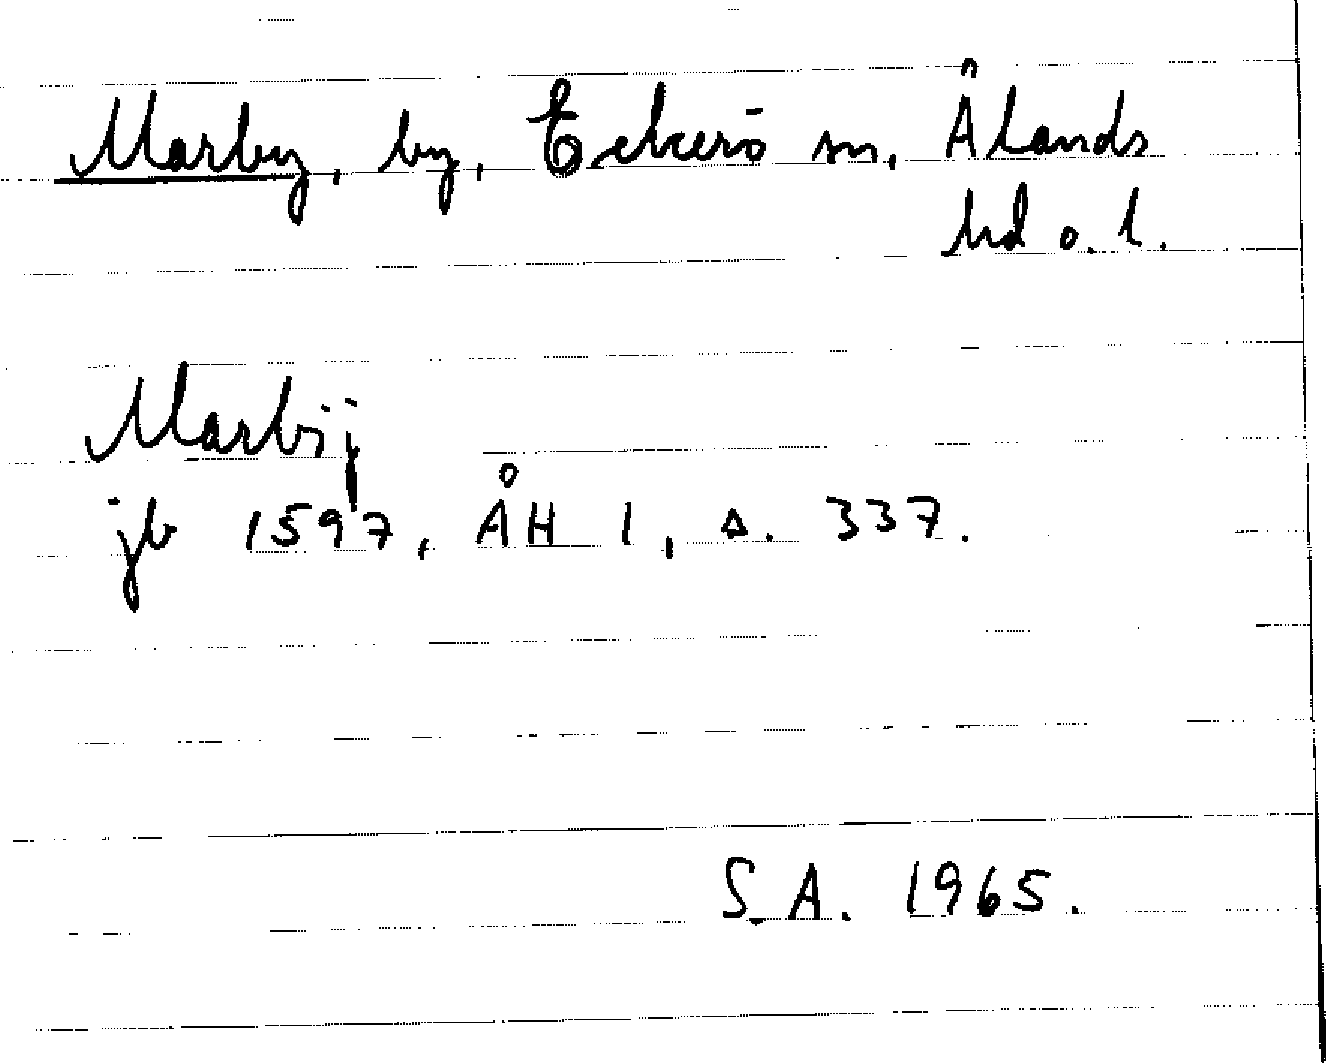 Marby, by, Eckerö sn, Ålands
hd o. l.
Marbÿ
jb 1597, ÅH 1, s. 337.
S.A. 1965.